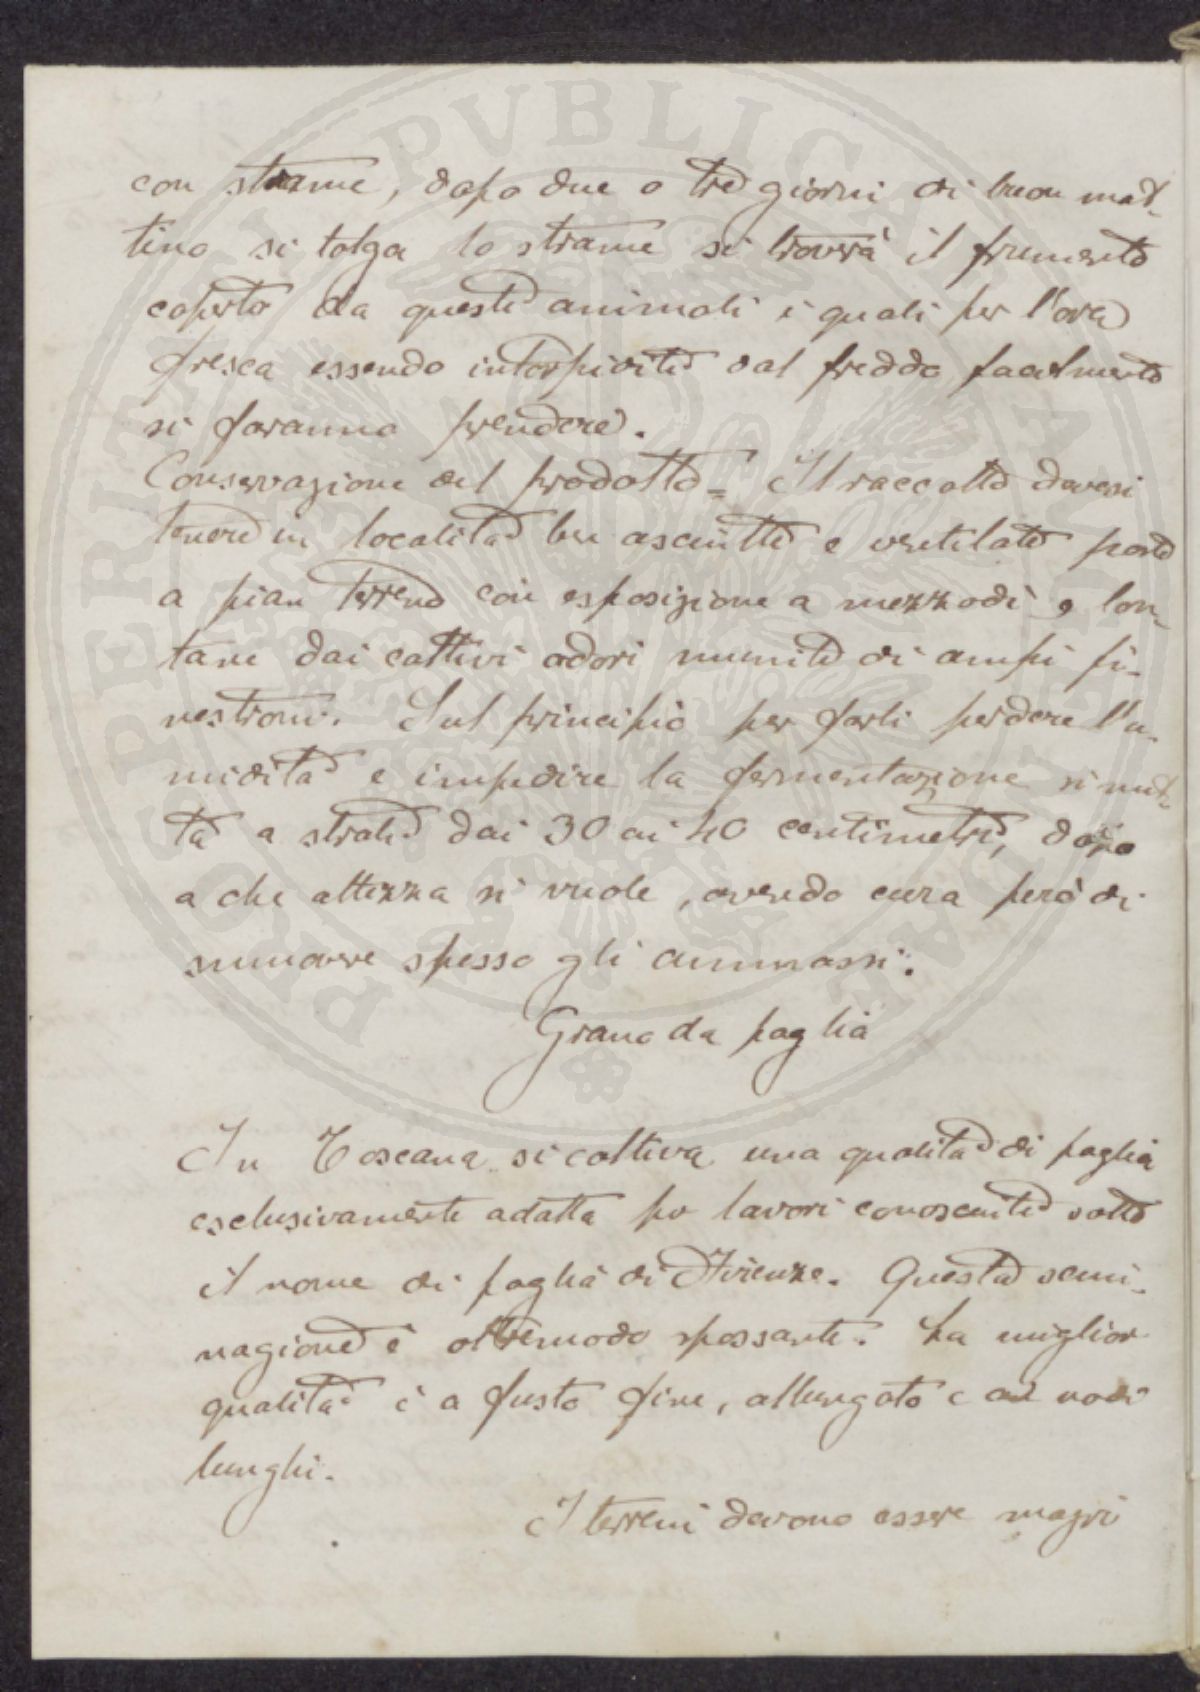 con strame, dopo due o tre giorni di buon mat-
tino si tolga lo strame si troverà il frumento
coperto da questi animali i quali per l'ora
fresca essendo intorpiditi dal freddo facilmente
si faranno prendere.
Conservazione del prodotto = Il raccolto devesi
tenere in località ben asciutte e ventilate poste
a pian terreno con esposizione a mezzodì e lon-
tane dai cattivi odori munite di ampi fi-
nestroni. Sul principio per farli perdere l'u-
midità e impedire la fermentazione si met-
ta a strati dai 30 ai 40 centimetri, dopo
a che altezza si vuole, avendo cura però di
smuovere spesso gli ammassi.
Grano da paglia
In Toscana si coltiva una qualità di paglia
esclusivamente adatta per lavori conosciuti sotto
il nome di paglia di Firenze. Questa semi-
nagione è oltremodo spossante. La miglior
qualità è a fusto fine, allungato e nodi
lunghi.
I terreni devono essere magri
PROSPERITATI PVBLICAE AVGENDAE